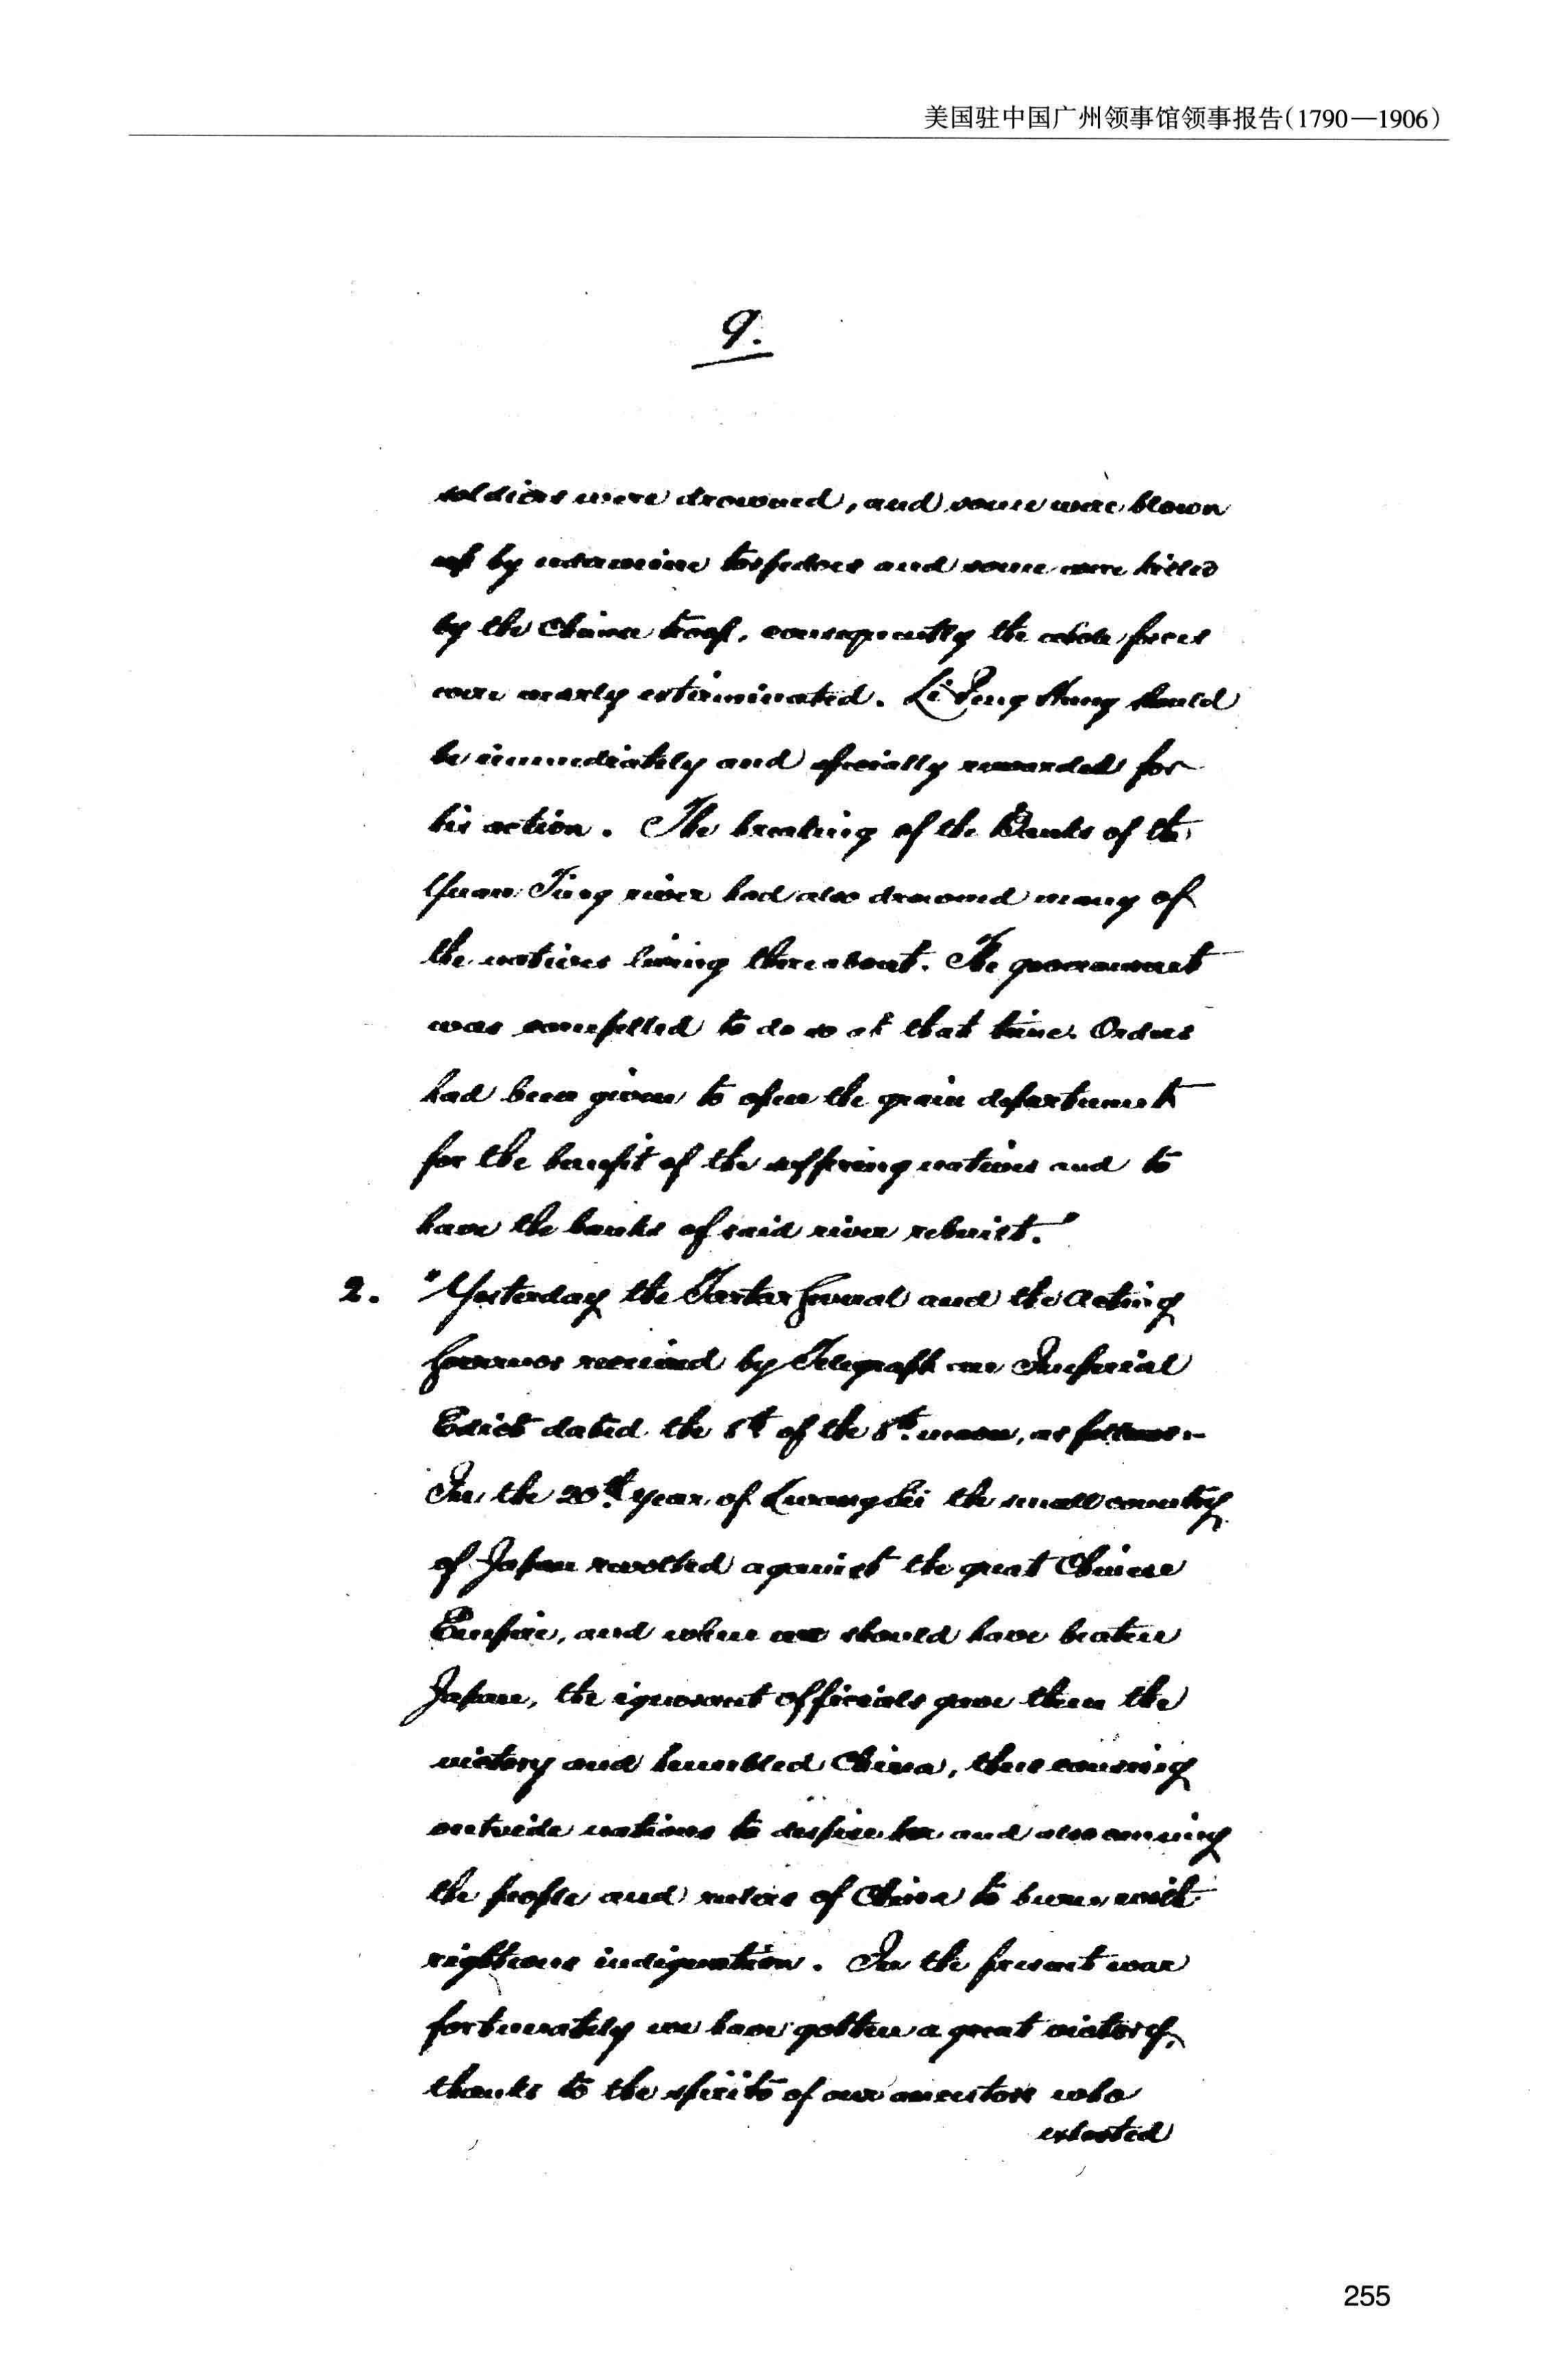 美国驻中国广州领事馆领事报告(1790—1906)
9.
soldiers were drowned, and some were blown
up by submarine torpedoes and some were killed
by the Chinese troops, consequently the whole forces
were nearly exterminated. Li Peng Hung should
be immediately and specially rewarded for
his action. The breaking of the Banks of the
Yuan Ting river had also drowned many of
the natives living thereabout. The government
was compelled to do so at that time. Orders
had been given to open the grain department
for the benefit of the suffering natives and to
have the banks of said river rebuilt."
2. "Yesterday the Tartar General and the Acting
Governor received by Telegraph an Imperial
Edict dated the 8th of the 8th moon, as follows:-
In the 20th year of Kwang Sii the small country
of Japan revolted against the great Chinese
Empire, and when we should have beaten
Japan, the ignorant officials gave them the
victory and humbled China, thus causing
outside nations to despise her and also causing
the people and rulers of China to burn with
righteous indignation. In the present war
fortunately we have gotten a great victory,
thanks to the spirits of our ancestors who
exhorted
255